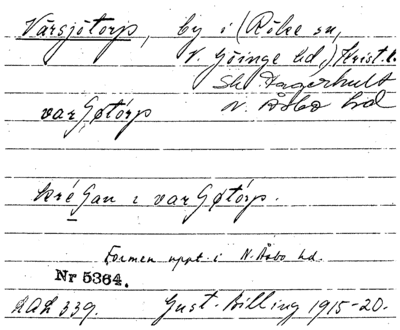 Vårsjötorp, by i (Röke sn,
V. Göinge hd,) Krist. l.
Sk. Fagerhult
N. Åsbo hd
varʃøtórp
kréʃan i varʃøtórp.
Formen uppt. i N. Åsbo hd.
Nr 5364.
LAL 339. Gust. Billing 1915-20.